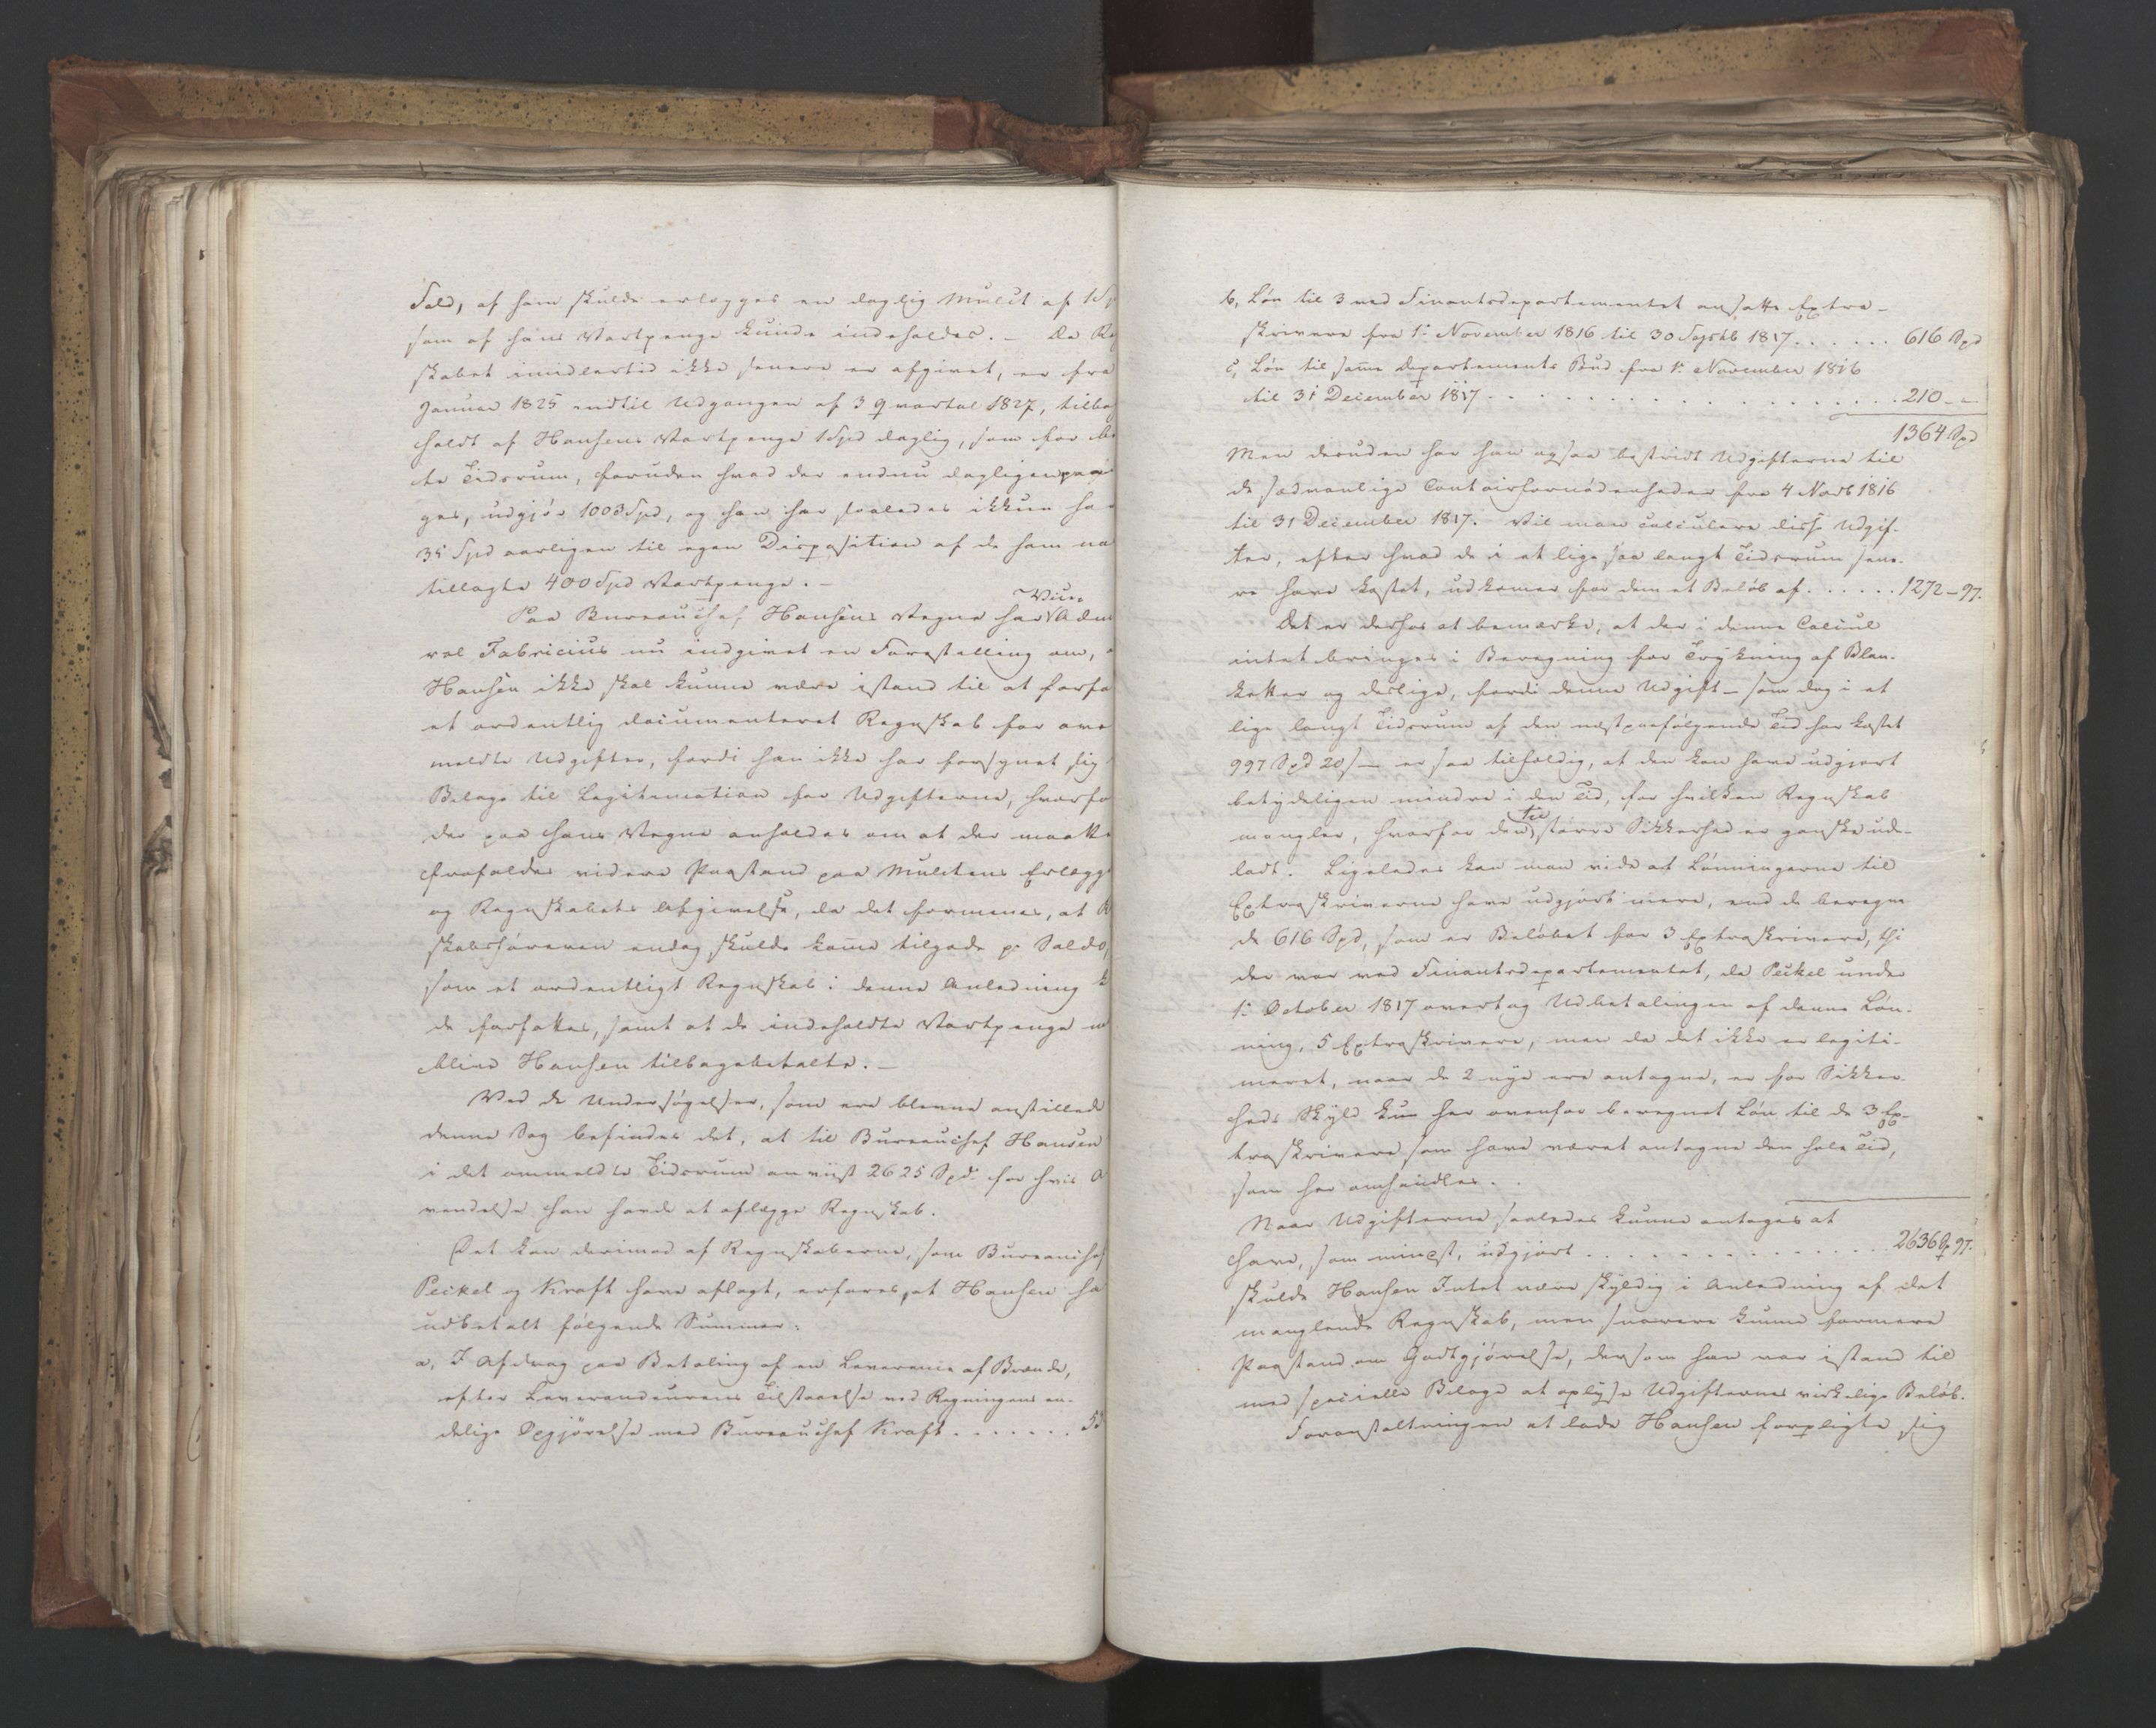 Fald, af ham skulde erlægges en daglig Mulct af 1 Sp
som af hans Vartpenge kunde indeholdes. – Da Reg
skabet imidlertid ikke senere er afgivet, er fra
Januar 1825 indtil Udgangen af 3 Qvartal 1827, tilba
holdt af Hansens Vartpenge 1 Spd daglig, som for be
te Tidsrum, foruden hvad der endnu dagligen paa
ges, udgjør 1003 Spd, og han har saaledes ikkun ha
35 Spd aarligen til egen Disposition af de ham na
tillagte 400 Spd Vartpenge. –
Paa Bureauchef Hansens Vegne har Vice- Adm
ral Fabricius nu indgivet en Forestilling om, a
Hansen ikke skal kunne være istand til at forfa
et ordentlig documenteret Regnskab for ove
meldte Udgifter, fordi han ikke har forsynet sig
Bilage til Legitimation for Udgifterne, hvorfo
der paa hans Vegne anholdes om at der maatte
frafaldes videre Paastand paa Mulctens Erlægg
og Regnskabets Afgivelse, da det formenes, at R
skabsføreren endog skulde kome tilgode pr Saldo,
som et ordentligt Regnskab i denne Anledning k
de forfattes, samt at de indeholdte Vartpenge m
blive Hansen tilbagebetalte. –
Ved de Undersøgelser, som ere blevne anstillede
denne Sag befindes det, at til Bureauchef Hansen
i det ommeldte Tidsrum anviist 2625 Spd. for hvis A
vendelse han havde at aflægge Regnskab.
Det kan derimod af Regnskaberne, som Bureauchef
Peckel og Kraft have aflagt, erfares, at Hansen ha
udbetalt følgende Summer:
a, I Afdrag paa Betaling af en Leverance af Brænde,
efter Leverandeurens Tilstaaelse ved Regningens en-
delige Opgjørelse med Bureauchef Kraft . . . . . . . 53
b, Løn til 3 ved Finantsdepartementet ansatte Extra-
skrivere fra 1. November 1816 til 30 Septbr 1817 . . . . . . 616 Spd
c, Løn til same Departements Bud fra 1. November 1816
til 31 December 1817 . . . . . . . . . . . . . . . 210 – "
1364 Spd
Men desuden har han ogsaa bestridt Udgifterne til
de sædvanlige Contoirfornødenheder fra 4 Novb 1816
til 31 December 1817. Vil man calculere disse Udgif-
ter, efter hvad de i et lige saa langt Tidsrum sene-
re have kostet, udkomer for dem et Beløb af . . . . . 1272 – 97.
Det er derhos at bemærke, at der i denne Calcul
intet bringes i Beregning for Trykning af Blan-
ketter og deslige, fordi denne Udgift – som dog i et
lige langt Tidsrum af den næstpaafølgende Tid har kostet
997 Spd 20 s – er saa tilfældig, at den kan have udgjort
betydeligen mindre i den Tid, for hvilken Regnskab
mangler, hvorfor den til større Sikkerhed er ganske ude-
ladt. Ligeledes kan man vide at Lønningerne til
Extraskriverne have udgjort mere, end de beregne
de 616 Spd, som er Beløbet for 3 Extraskrivere, thi
der var ved Finantsdepartementet, da Peckel under
1. October 1817 overtog Udbetalingen af denne Løn-
ning, 5 Extraskrivere, men da det ikke er legiti-
meret, naar de 2 nye ere antagne, er for Sikker-
heds Skyld kun her ovenfor beregnet Løn til de 3 Ex-
traskrivere som have været antagne den hele Tid,
som her omhandles.
Naar Udgifterne saaledes kunne antages at
have, som mindst, udgjort . . . . . . . . . . . . . 2636 Sp 97.
skulde Hansen Intet være skyldig i Anledning af det
manglende Regnskab, men snarere kunne formere
Paastand om Godtgjørelse, dersom han var istand til
med specielle Bilage at oplyse Udgifternes virkelige Beløb.
Foranstaltningen at lade Hansen forpligte sig